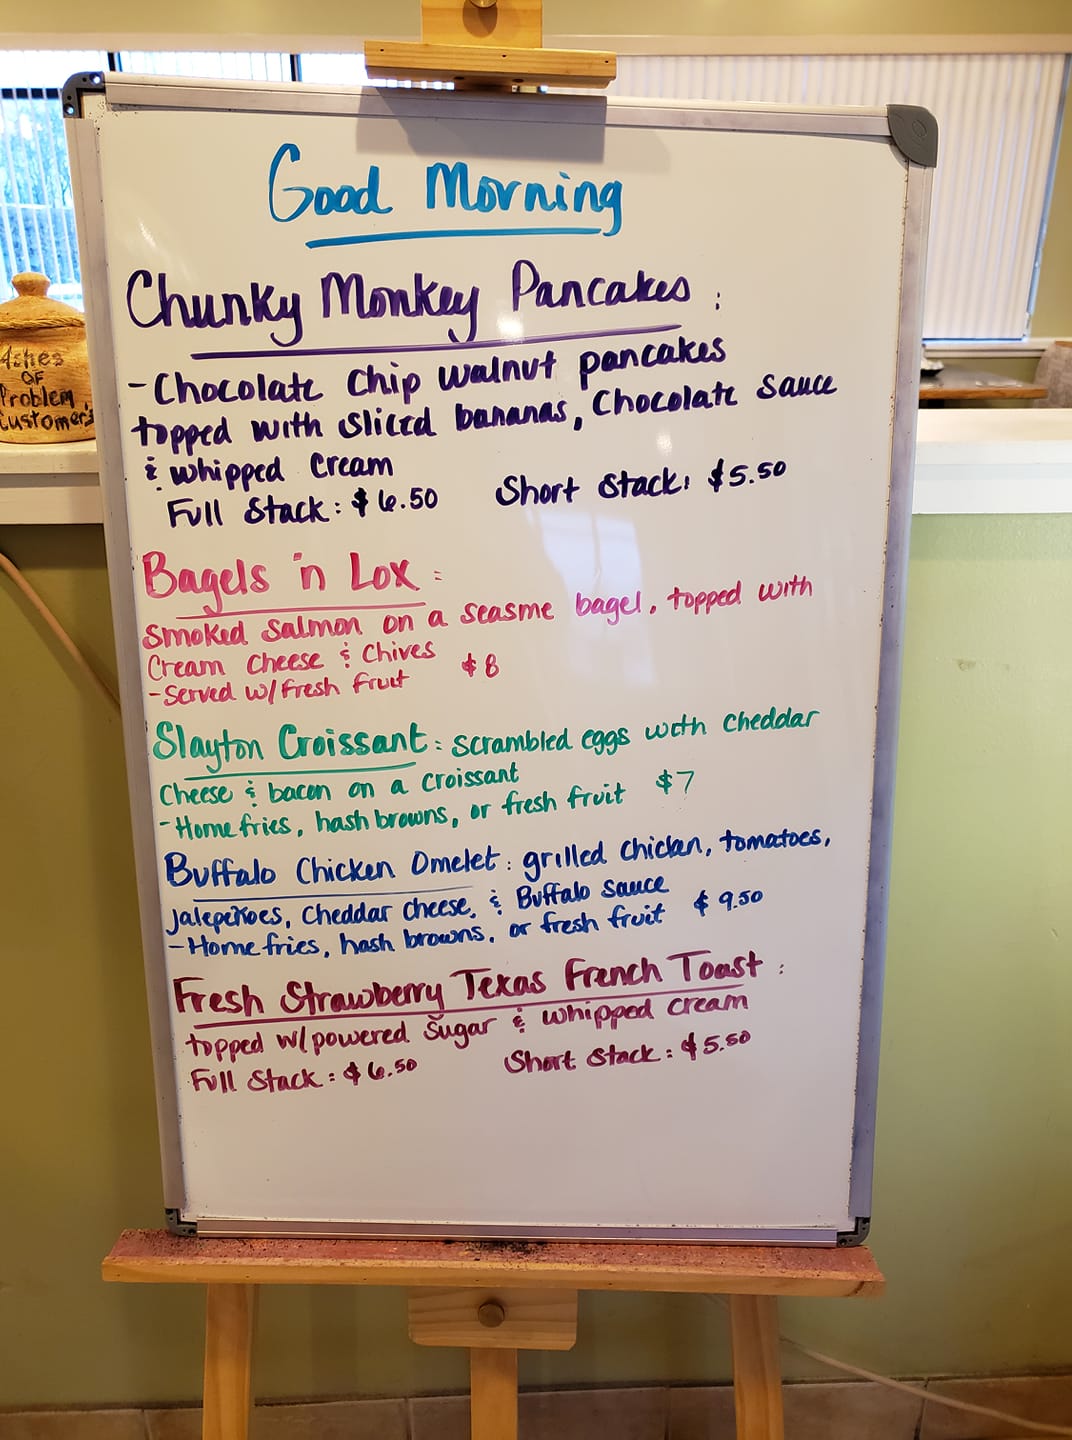 Good Morning
Chunky Monkey Pancakes :
- Chocolate Chip walnut pancakes
topped with sliced bananas, Chocolate Sauce
& whipped Cream
Full Stack: $6.50 Short Stack: $5.50
Bagels 'n Lox :
Smoked Salmon on a seasme bagel, topped with
Cream Cheese & Chives
- Served w/ fresh fruit $8
Slayton Croissant : scrambled eggs with Cheddar
Cheese & bacon on a croissant
- Home fries, hash browns, or fresh fruit $7
Buffalo Chicken Omelet : grilled chicken, tomatoes,
jalepeñoes, Cheddar cheese, & Buffalo Sauce
- Home fries, hash browns, or fresh fruit $9.50
Fresh Strawberry Texas French Toast :
topped w/ powered Sugar & whipped cream
Full Stack : $6.50 Short Stack : $5.50
Ashes
OF
Problem
Customers